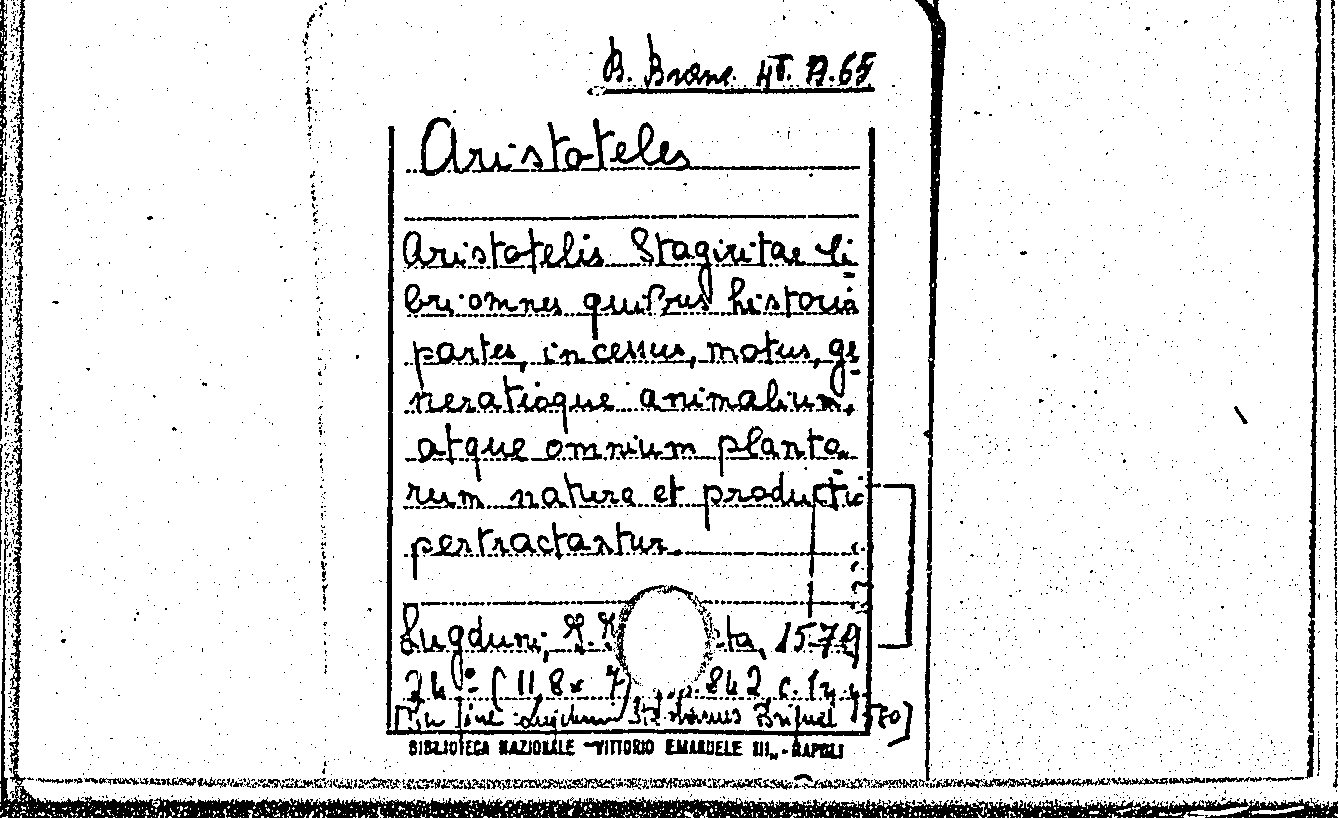 B. Branc. 45. A. 65
Aristoteles
Aristotelis Stagiritae li
bri omnes quibus historia
partes, incessus, motus, ge
neratioque animalium,
atque omnium planta
rum natura et productio
pertractantur.
Lugduni, 1579
24° (11,8 x 7) 842
BIBLIOTECA NAZIONALE "VITTORIO EMANUELE III" - NAPOLI